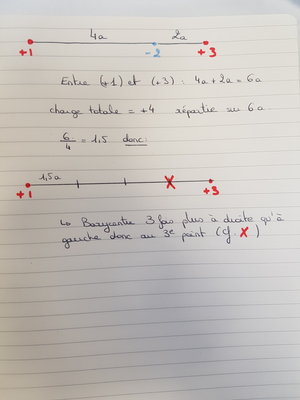 4a 2a
+1 -2 +3
Entre (+1) et (+3) : 4a + 2a = 6a
charge totale = +4 répartie sur 6a
6/4 = 1,5 donc:
1,5a
+1 +3
↳ Barycentre 3 fois plus à droite qu'à
gauche donc au 3e point (cf. X)